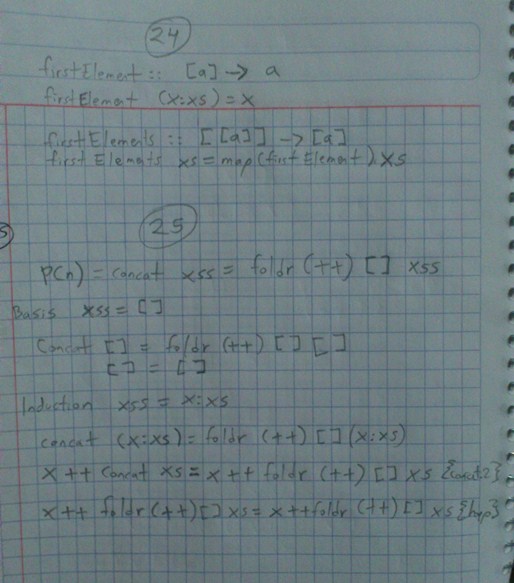 24
firstElement :: [a] -> a
firstElement (x:xs) = x
firstElements :: [[a]] -> [a]
first Elements xs = map (first Element) xs
25
P(n) = concat xss = foldr (++) [] xss
Basis xss = []
Concat [] = foldr (++) [] []
[] = []
Induction xss = x:xs
concat (x:xs) = foldr (++) [] (x:xs)
x ++ concat xs = x ++ foldr (++) [] xs {concat.2}
x ++ foldr (++) [] xs = x ++ foldr (++) [] xs {hyp}